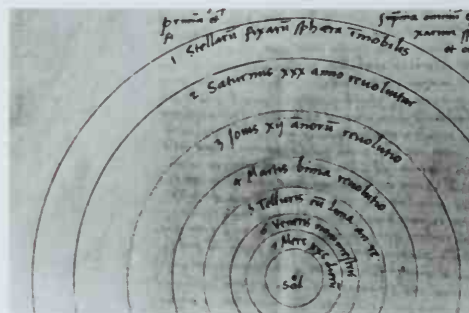 prima et suprema omnium
1 Stellarū fixarū sphæra imobilis
2 Saturnus xxx anno revoluitur
3 Jovis xij annorū revolutio
4 Martis bima revolutio
5 Telluris cū luna an. re.
6 Veneris nonimestris
7 Merc xxx dierū
Sol